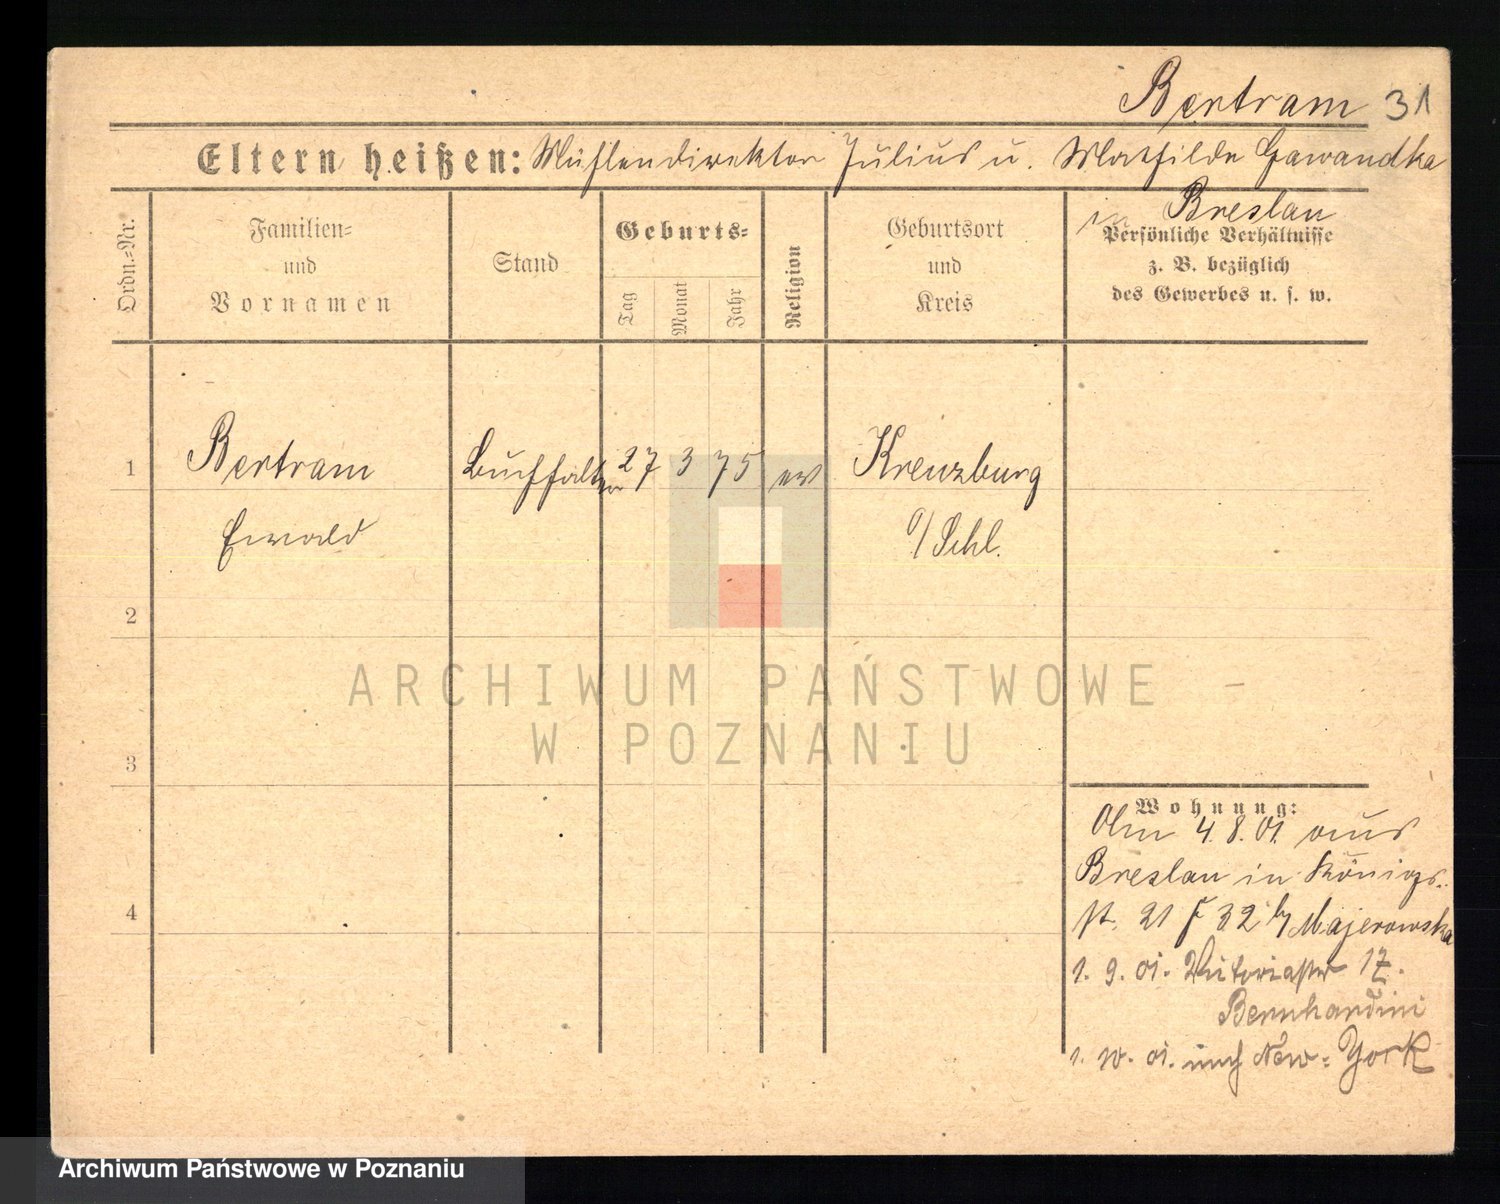 Bertram 31
Eltern heißen: Mühlendirektor Julius u. Mathilde Gawandka
in Breslau
Ordn.-Nr.
Familien-
und
Vornamen
Stand
Geburts-
Tag
Monat
Jahr
Religion
Geburtsort
und
Kreis
Persönliche Verhältnisse
z. B. bezüglich
des Gewerbes u. s. w.
1 Bertram Buchhalter 27 3 75 ev Kreuzburg
Ewald O/Schl.
2
3
4
ARCHIWUM PAŃSTWOWE
W POZNANIU
Wohnung:
Am 4.8.01. aus
Breslau in Königs-
st. 21 32 b/ Majerowska
1. 9. 01. Viktoriastr 17.
Bernhardini
1. 10. 01. nach New-York
Archiwum Państwowe w Poznaniu